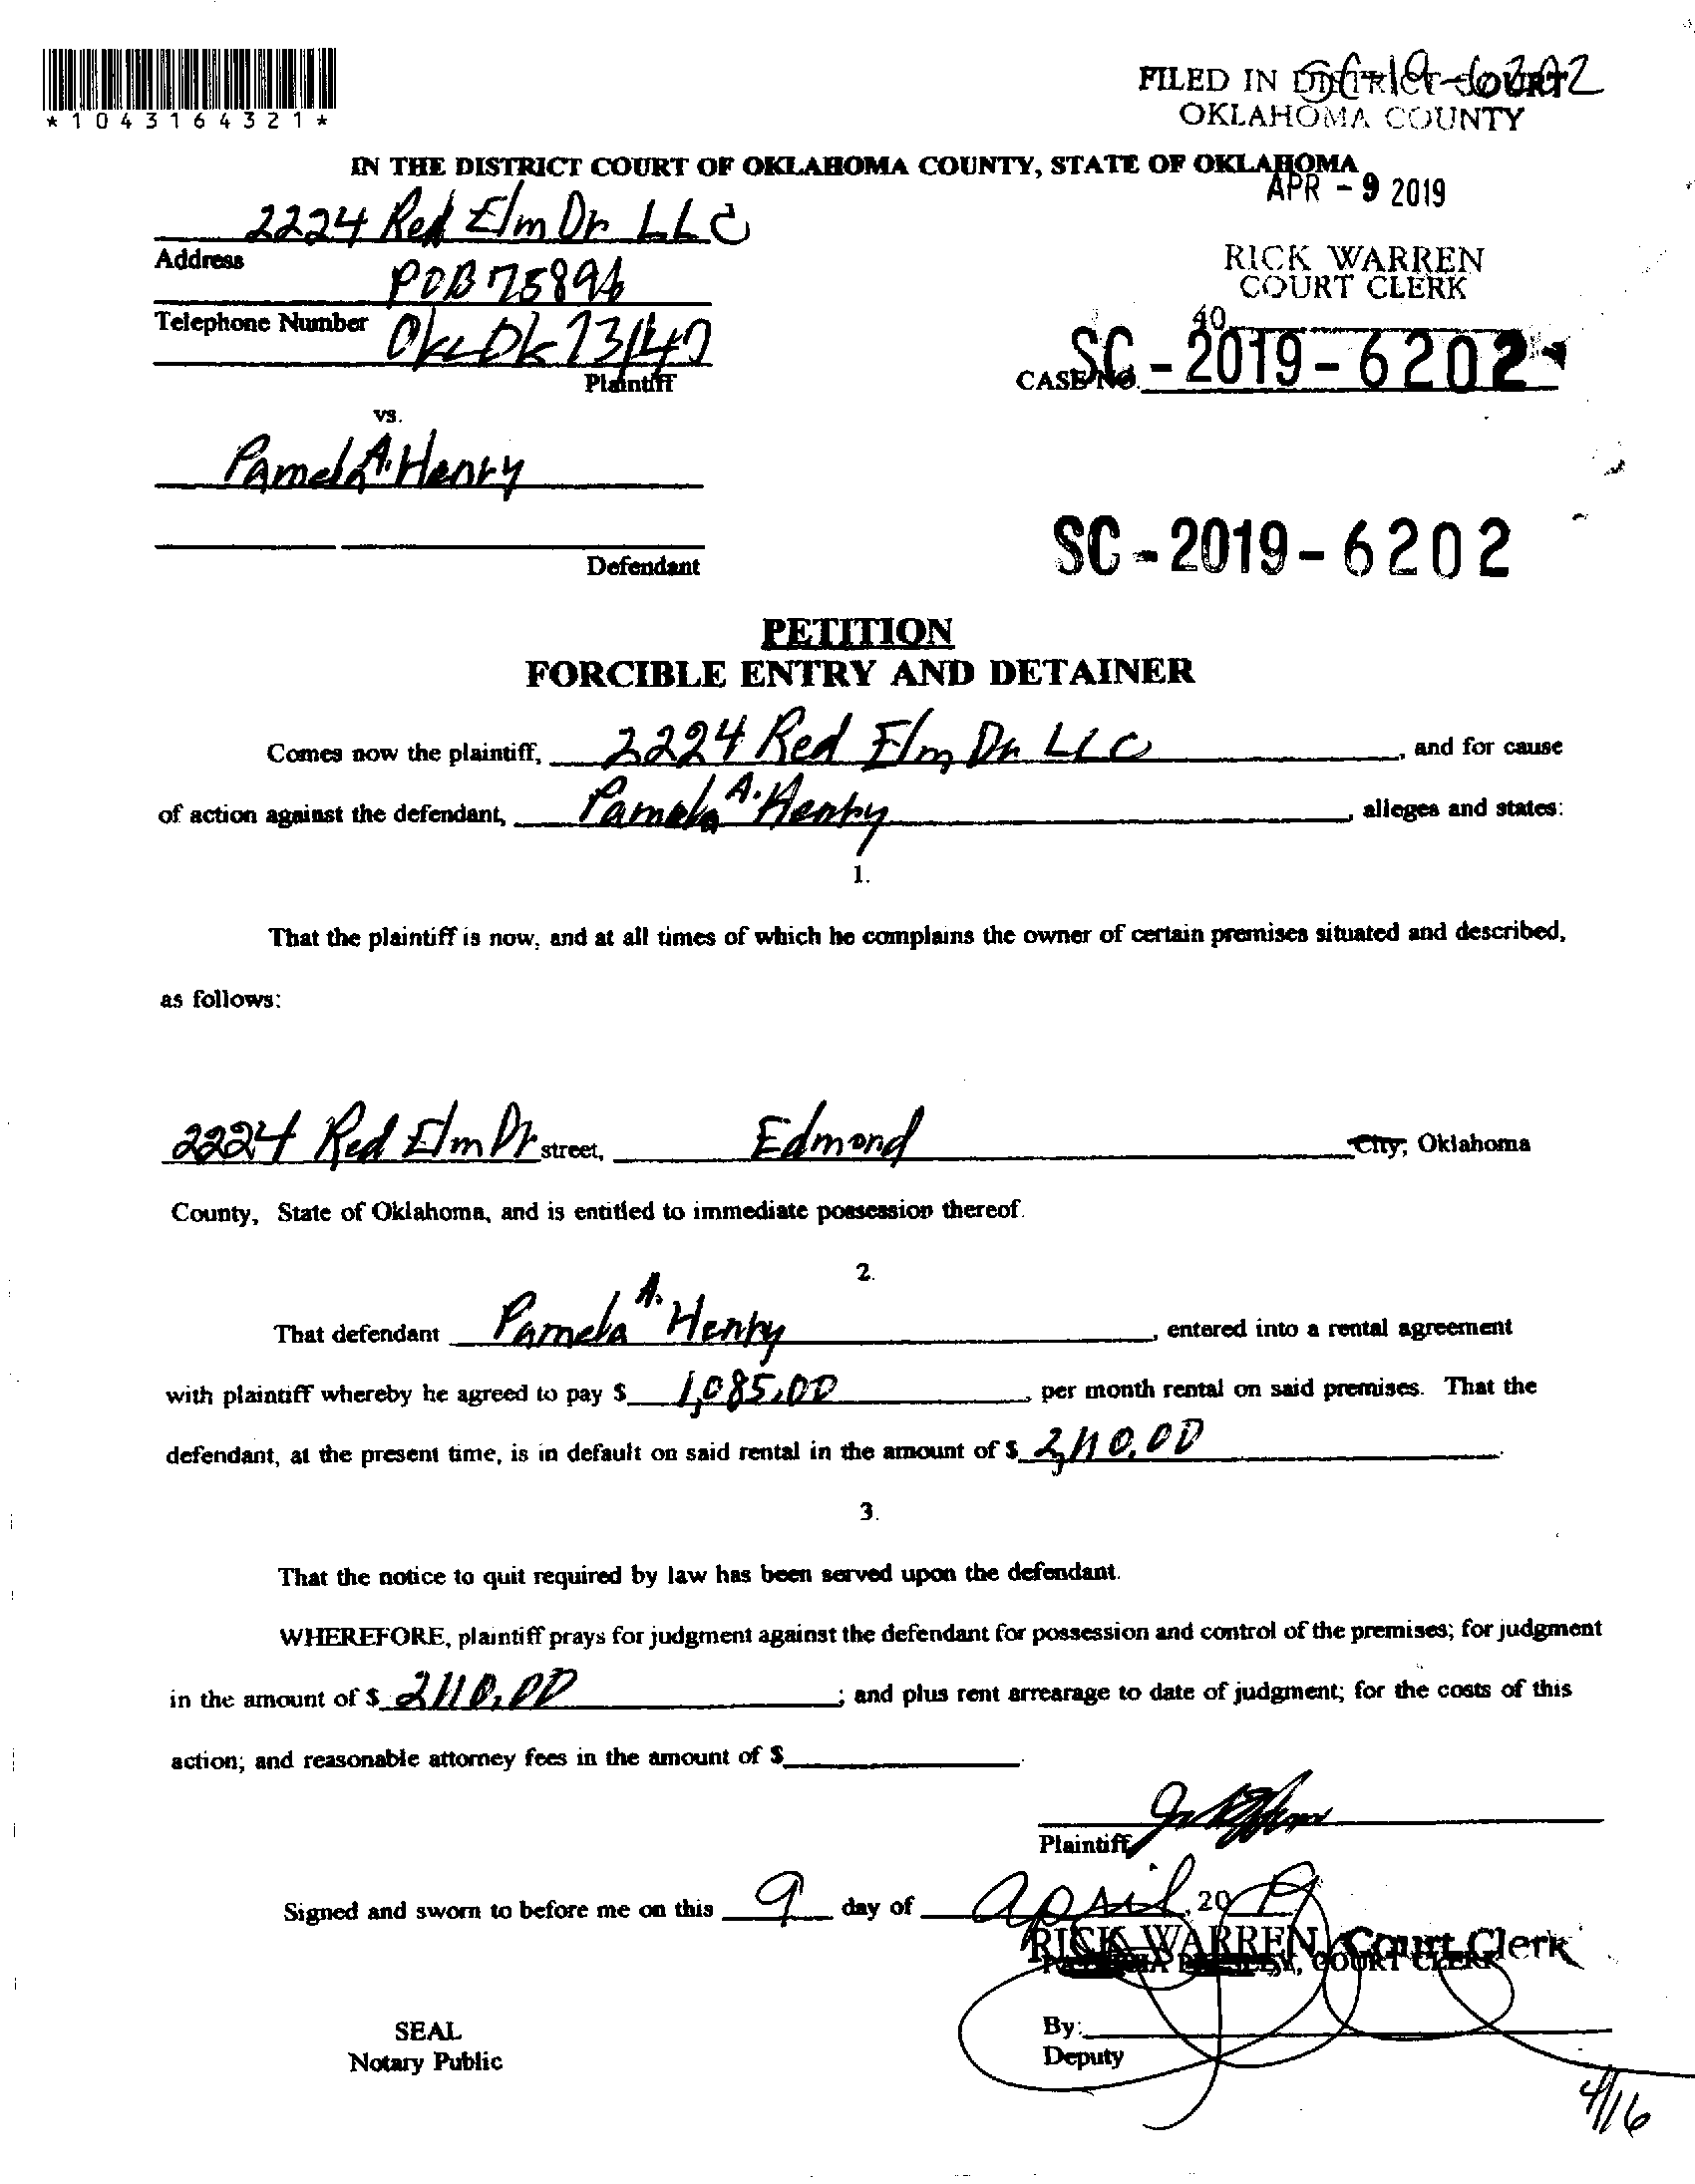 *1043164321*
SC-19-6202
FILED IN DISTRICT COURT
OKLAHOMA COUNTY
IN THE DISTRICT COURT OF OKLAHOMA COUNTY, STATE OF OKLAHOMA
APR - 9 2019
2224 Red Elm Dr LLC
Address
RICK WARREN
COURT CLERK
POB 75894
Telephone Number
40
OKC OK 73147
Plaintiff
CASE NO. SC - 2019 - 6202
vs.
Pamela A. Henry
Defendant
SC - 2019 - 6202
PETITION
FORCIBLE ENTRY AND DETAINER
Comes now the plaintiff, 2224 Red Elm Dr LLC, and for cause
of action against the defendant, Pamela A. Henry, alleges and states:
1.
That the plaintiff is now, and at all times of which he complains the owner of certain premises situated and described,
as follows:
2224 Red Elm Dr street, Edmond City, Oklahoma
County, State of Oklahoma, and is entitled to immediate possession thereof.
2.
That defendant Pamela A. Henry, entered into a rental agreement
with plaintiff whereby he agreed to pay $ 1,085.00, per month rental on said premises. That the
defendant, at the present time, is in default on said rental in the amount of $ 2,110.00.
3.
That the notice to quit required by law has been served upon the defendant.
WHEREFORE, plaintiff prays for judgment against the defendant for possession and control of the premises; for judgment
in the amount of $ 2110.00; and plus rent arrearage to date of judgment; for the costs of this
action; and reasonable attorney fees in the amount of $
Plaintiff
Signed and sworn to before me on this 9 day of April, 2019
RICK WARREN, Court Clerk
COURT CLERK
SEAL
Notary Public
By:
Deputy
4/16